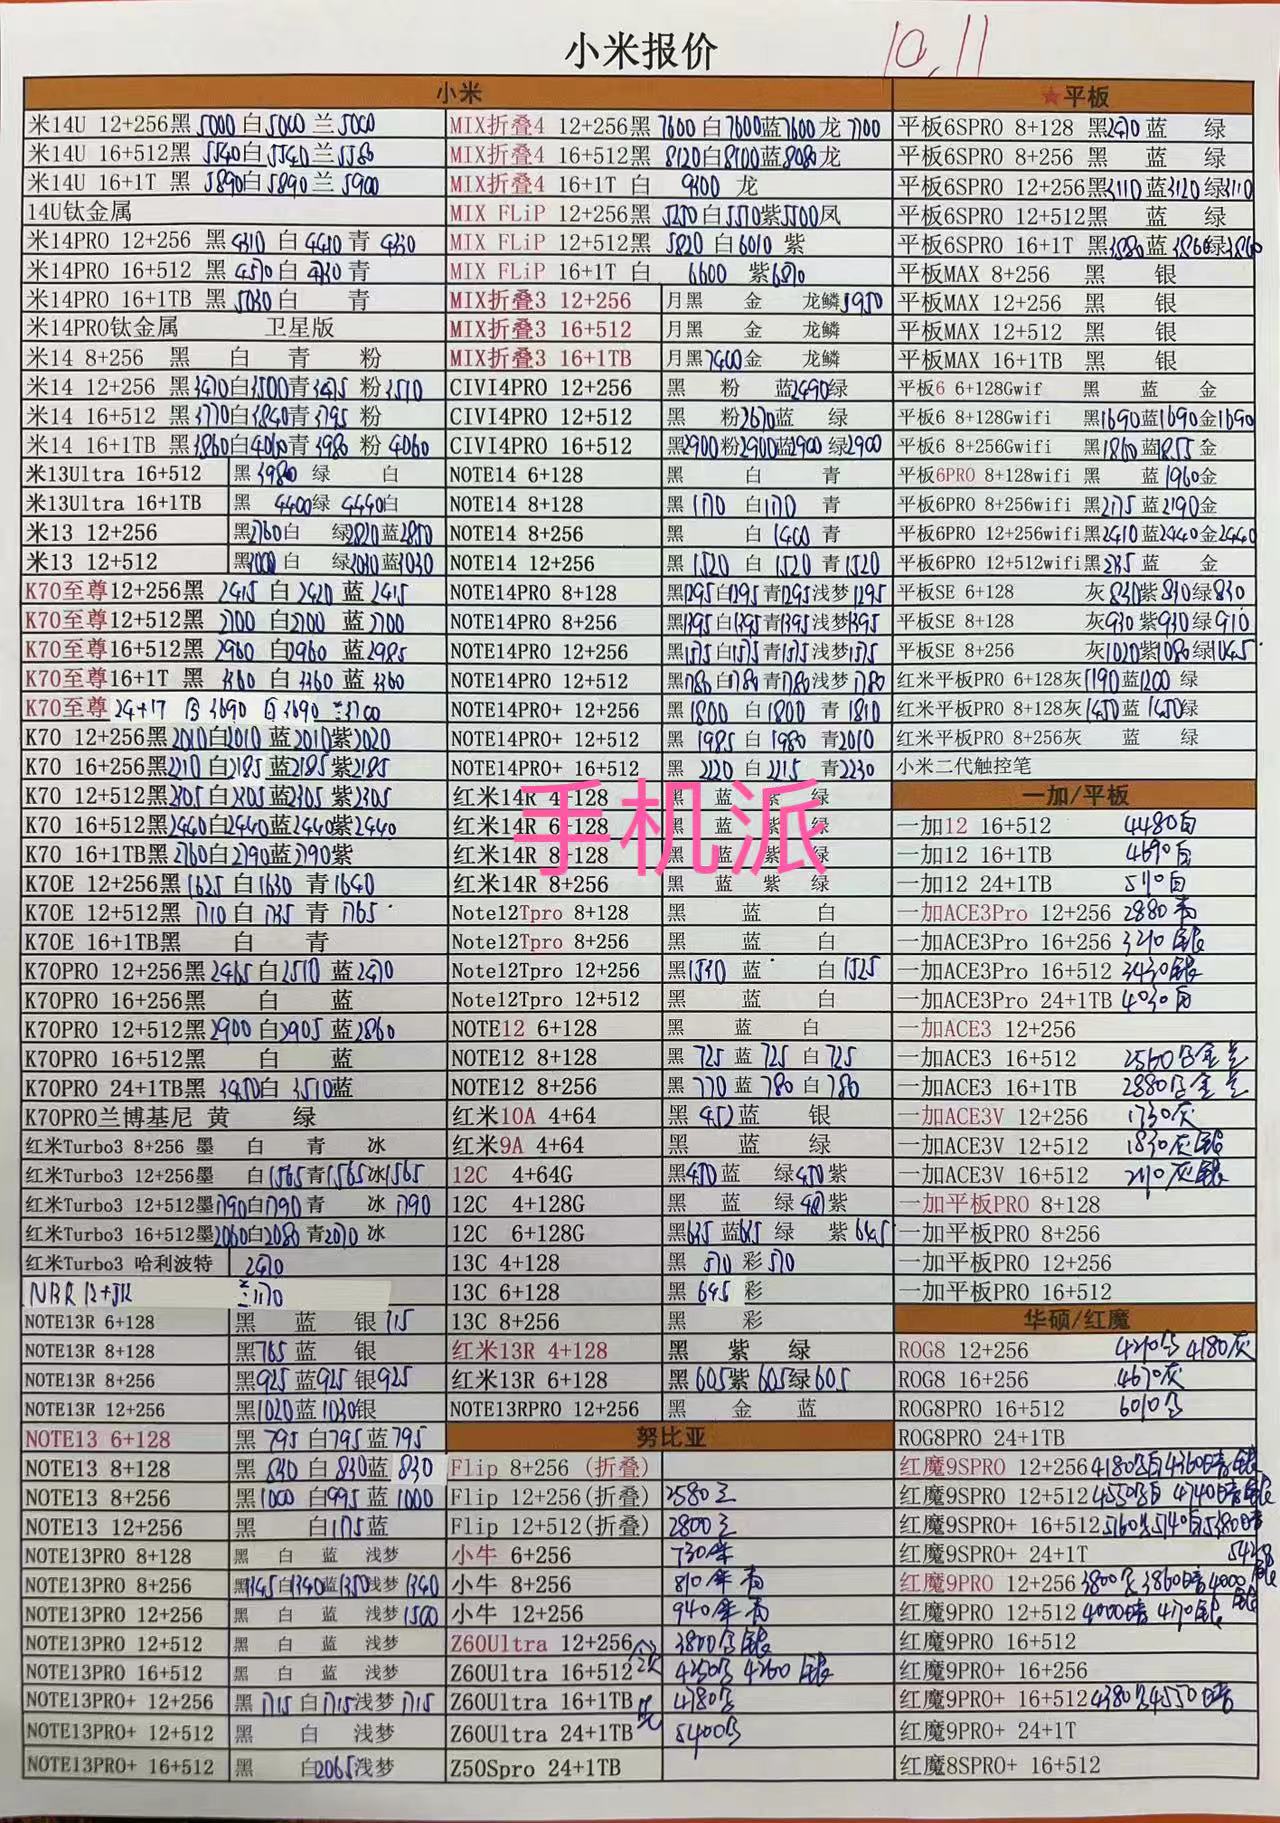 小米报价
10.11
小米
米14U 12+256黑 5000 白5000 兰5000
米14U 16+512黑 5540白5540兰5580
米14U 16+1T 黑 5890白5890 兰5900
14U钛金属
米14PRO 12+256 黑4310 白4410 青 4330
米14PRO 16+512 黑4570白4730 青
米14PRO 16+1TB 黑5030白 青
米14PRO钛金属 卫星版
米14 8+256 黑 白 青 粉
米14 12+256 黑3470白3500青3475 粉3510
米14 16+512 黑3770白3840青3795 粉
米14 16+1TB 黑3860白4060青3980 粉 4060
米13Ultra 16+512 黑3980 绿 白
米13Ultra 16+1TB 黑 4400绿 4440白
米13 12+256 黑2760白 绿2820蓝2850
米13 12+512 黑3000白 绿3030蓝3030
K70至尊12+256黑 2415 白2420 蓝 2415
K70至尊12+512黑 2700 白2700 蓝 2700
K70至尊16+512黑 2960 白2960 蓝 2985
K70至尊16+1T 黑 3360 白3360 蓝3360
K70至尊 3690 白3690 3700
K70 12+256黑2010白2010 蓝2010紫2020
K70 16+256黑2210白2185 蓝2185紫2185
K70 12+512黑2305 白2305 蓝2305 紫2305
K70 16+512黑2440白2440蓝2440紫2440
K70 16+1TB黑2760白2790蓝2790紫
K70E 12+256黑1625 白1630 青1640
K70E 12+512黑 1710 白1735 青 1765
K70E 16+1TB黑 白 青
K70PRO 12+256黑2465白2510 蓝2470
K70PRO 16+256黑 白 蓝
K70PRO 12+512黑2900 白2905 蓝2860
K70PRO 16+512黑 白 蓝
K70PRO 24+1TB黑 3450白 3510蓝
K70PRO兰博基尼 黄 绿
红米Turbo3 8+256 墨 白 青 冰
红米Turbo3 12+256墨 白1565青1565冰1565
红米Turbo3 12+512墨1790白1790 青 冰 1790
红米Turbo3 16+512墨2060白2080 青2070 冰
红米Turbo3 哈利波特 2470
1170
NOTE13R 6+128 黑 蓝 银 715
NOTE13R 8+128 黑765 蓝 银
NOTE13R 8+256 黑925 蓝925 银925
NOTE13R 12+256 黑1020蓝1030银
NOTE13 6+128 黑 795 白795 蓝 795
NOTE13 8+128 黑 830 白830蓝 830
NOTE13 8+256 黑1000 白995 蓝 1000
NOTE13 12+256 黑 白1175蓝
NOTE13PRO 8+128 黑 白 蓝 浅梦
NOTE13PRO 8+256 黑1345白1340蓝1350浅梦 1340
NOTE13PRO 12+256 黑 白 蓝 浅梦1500
NOTE13PRO 12+512 黑 白 蓝 浅梦
NOTE13PRO 16+512 黑 白 蓝 浅梦
NOTE13PRO+ 12+256 黑1715 白1715浅梦 1715
NOTE13PRO+ 12+512 黑 白 浅梦
NOTE13PRO+ 16+512 黑 白2065浅梦
MIX折叠4 12+256黑 7600 白7600蓝7600 龙 7700
MIX折叠4 16+512黑 8120白8100蓝8080龙
MIX折叠4 16+1T 白 9300 龙
MIX FLiP 12+256黑 5250白5510紫5500凤
MIX FLiP 12+512黑 5820 白6010 紫
MIX FLiP 16+1T 白 6600 紫6870
MIX折叠3 12+256 月黑 金 龙鳞5950
MIX折叠3 16+512 月黑 金 龙鳞
MIX折叠3 16+1TB 月黑7400金 龙鳞
CIVI4PRO 12+256 黑 粉 蓝2490绿
CIVI4PRO 12+512 黑 粉2670蓝 绿
CIVI4PRO 16+512 黑2900粉2900蓝2900 绿2900
NOTE14 6+128 黑 白 青
NOTE14 8+128 黑 1170 白1170 青
NOTE14 8+256 黑 白 1400 青
NOTE14 12+256 黑 1520 白 1520 青1520
NOTE14PRO 8+128 黑1295白1295青1295浅梦1295
NOTE14PRO 8+256 黑1395白1395青1395浅梦1395
NOTE14PRO 12+256 黑1575白1575青1575浅梦1575
NOTE14PRO 12+512 黑1780白1780青1780浅梦1780
NOTE14PRO+ 12+256 黑1800 白1800 青 1810
NOTE14PRO+ 12+512 黑 1985白 1980 青2010
NOTE14PRO+ 16+512 黑 2220 白2215 青2230
红米14R 4+128 黑 蓝 紫 绿
红米14R 6+128 黑 蓝 紫 绿
红米14R 8+128 黑 蓝 紫 绿
红米14R 8+256 黑 蓝 紫 绿
手机派
Note12Tpro 8+128 黑 蓝 白
Note12Tpro 8+256 黑 蓝 白
Note12Tpro 12+256 黑1530 蓝 白1525
Note12Tpro 12+512 黑 蓝 白
NOTE12 6+128 黑 蓝 白
NOTE12 8+128 黑 725 蓝 725 白725
NOTE12 8+256 黑 770 蓝 780 白780
红米10A 4+64 黑 452蓝 银
红米9A 4+64 黑 蓝 绿
12C 4+64G 黑450蓝 绿450紫
12C 4+128G 黑 蓝 绿 紫
12C 6+128G 黑635 蓝615 绿 紫 645
13C 4+128 黑 570 彩570
13C 6+128 黑 645 彩
13C 8+256 黑 彩
红米13R 4+128 黑 紫 绿
红米13R 6+128 黑605紫605绿605
NOTE13RPRO 12+256 黑 金 蓝
努比亚
Flip 8+256 (折叠)
Flip 12+256(折叠) 2580
Flip 12+512(折叠) 2800
小牛 6+256 730
小牛 8+256 810
小牛 12+256 940
Z60Ultra 12+256 3800 银
Z60Ultra 16+512 4250 4260 银
Z60Ultra 16+1TB 4780
Z60Ultra 24+1TB 5400
Z50Spro 24+1TB
★平板
平板6SPRO 8+128 黑2470 蓝 绿
平板6SPRO 8+256 黑 蓝 绿
平板6SPRO 12+256黑3110蓝3120绿3110
平板6SPRO 12+512黑 蓝 绿
平板6SPRO 16+1T 黑3880蓝3860绿3860
平板MAX 8+256 黑 银
平板MAX 12+256 黑 银
平板MAX 12+512 黑 银
平板MAX 16+1TB 黑 银
平板6 6+128Gwif 黑 蓝 金
平板6 8+128Gwifi 黑1690蓝1690金1690
平板6 8+256Gwifi 黑1860蓝1855金
平板6PRO 8+128wifi 黑 蓝1960金
平板6PRO 8+256wifi 黑2175蓝2190金
平板6PRO 12+256wifi黑2410蓝2440金2440
平板6PRO 12+512wifi黑2735蓝 金
平板SE 6+128 灰830紫830绿830
平板SE 8+128 灰930紫930绿910
平板SE 8+256 灰1070紫1080绿1045
红米平板PRO 6+128灰1190蓝1200 绿
红米平板PRO 8+128灰1450蓝1450绿
红米平板PRO 8+256灰 蓝 绿
小米二代触控笔
一加/平板
一加12 16+512 4480白
一加12 16+1TB 4690白
一加12 24+1TB 5110白
一加ACE3Pro 12+256 2880青
一加ACE3Pro 16+256 3210银
一加ACE3Pro 16+512 3430银
一加ACE3Pro 24+1TB 4030白
一加ACE3 12+256
一加ACE3 16+512 2560
一加ACE3 16+1TB 2880
一加ACE3V 12+256 1730灰
一加ACE3V 12+512 1830灰银
一加ACE3V 16+512 2110灰银
一加平板PRO 8+128
一加平板PRO 8+256
一加平板PRO 12+256
一加平板PRO 16+512
华硕/红魔
ROG8 12+256 4210 4180灰
ROG8 16+256 4670灰
ROG8PRO 16+512 6010
ROG8PRO 24+1TB
红魔9SPRO 12+256 4180 4360 银
红魔9SPRO 12+512 4550 4740 银
红魔9SPRO+ 16+512 5160 5140 5380
红魔9SPRO+ 24+1T
红魔9PRO 12+256 3800 3860 4000
红魔9PRO 12+512 4000 4170 银
红魔9PRO 16+512
红魔9PRO+ 16+256
红魔9PRO+ 16+512 4380 4550
红魔9PRO+ 24+1T
红魔8SPRO+ 16+512